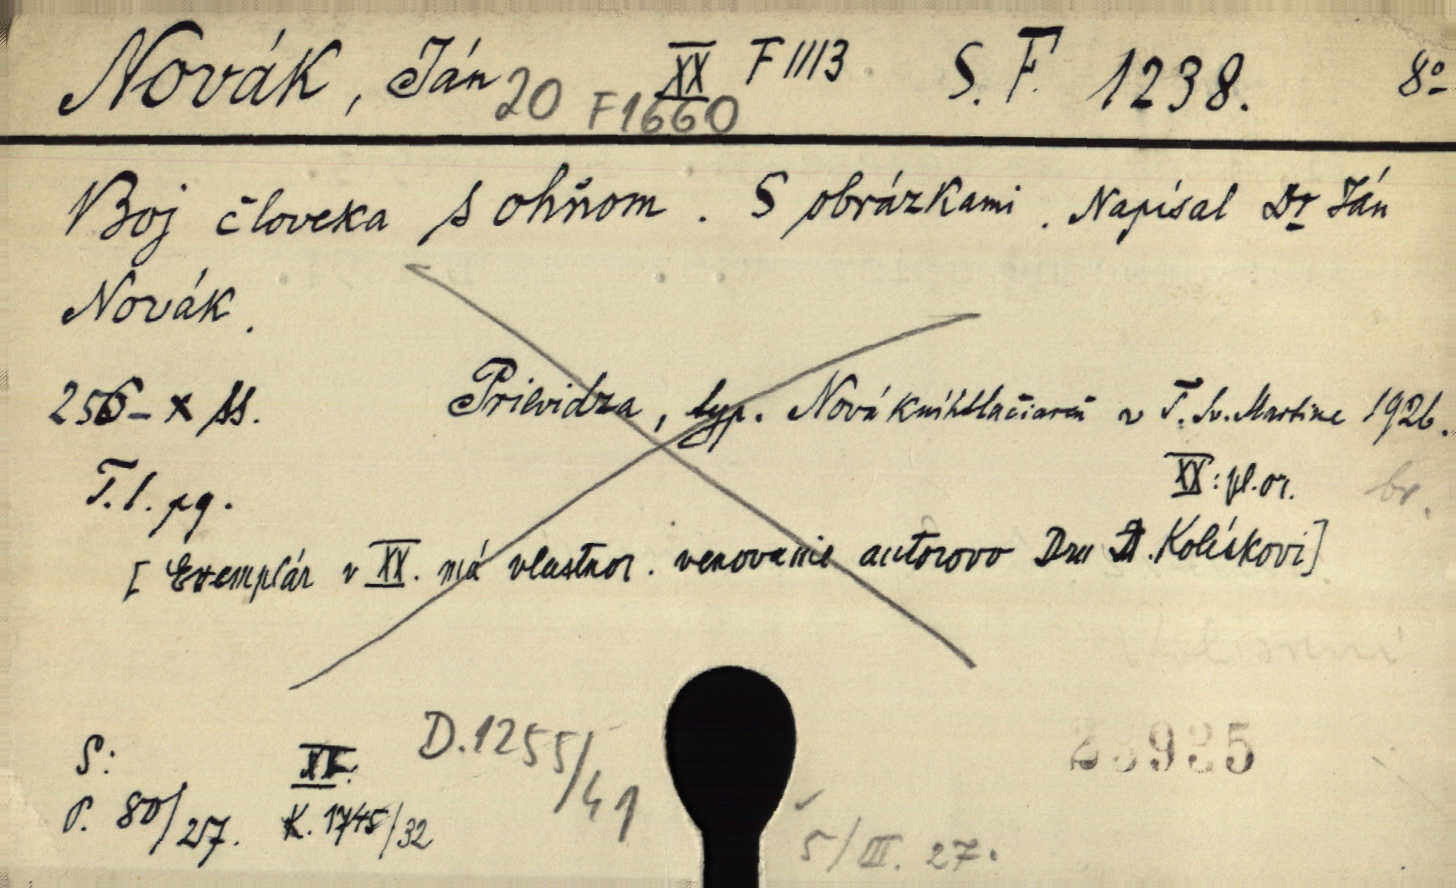 Novák, Ján XX F 1113 S. F. 1238. 8º
20 F1660
Boj človeka s ohňom. S obrázkami. Napísal Dr Ján
Novák.
256 - X ss. Prievidza, typ. Novák kníhtlačiareň v T. Sv. Martine 1926.
T. l. pg. XX: pl. or. br.
[Exemplár v XX. má vlastnor. venovanie autorovo Dru A. Kolískovi]
S: XX: D.1255/41
P. 80/257. K. 1745/32
5/III. 27.